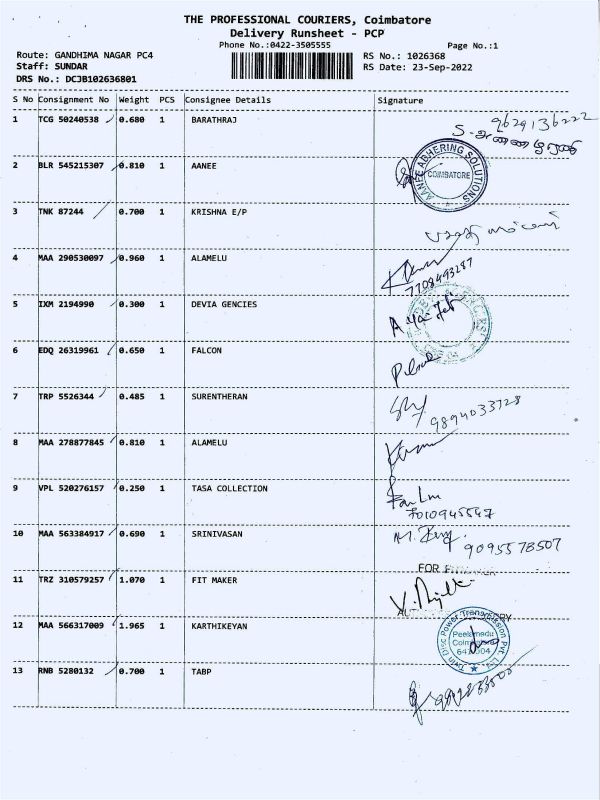 THE PROFESSIONAL COURIERS, Coimbatore
Delivery Runsheet - PCP
Phone No.:0422-3505555
Page No.:1
Route: GANDHIMA NAGAR PC4
RS No.: 1026368
Staff: SUNDAR
RS Date: 23-Sep-2022
DRS No.: DCJB102636801
S No Consignment No Weight PCS Consignee Details Signature
1 TCG 50240538 0.680 1 BARATHRAJ
9629136222
2 BLR 545215307 0.810 1 AANEE
AANEE ADHERING SOLUTIONS
COIMBATORE
3 TNK 87244 0.700 1 KRISHNA E/P
4 MAA 290530097 0.960 1 ALAMELU
7708493287
5 IXM 2194990 0.300 1 DEVIA GENCIES
6 EDQ 26319961 0.650 1 FALCON
7 TRP 5526344 0.485 1 SURENTHERAN
9894033728
8 MAA 278877845 0.810 1 ALAMELU
9 VPL 520276157 0.250 1 TASA COLLECTION
7010945547
10 MAA 563384917 0.690 1 SRINIVASAN
9095578507
11 TRZ 310579257 1.070 1 FIT MAKER
FOR
12 MAA 566317009 1.965 1 KARTHIKEYAN
Twin Disc Power Transmission Pvt. Ltd.
Peelamedu
Coimbatore
641 004
13 RNB 5280132 0.700 1 TABP